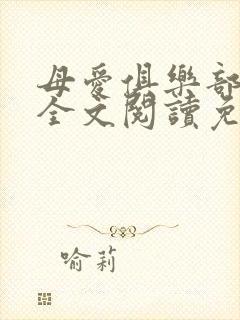 母愛俱樂部
全文閱讀免
喻莉